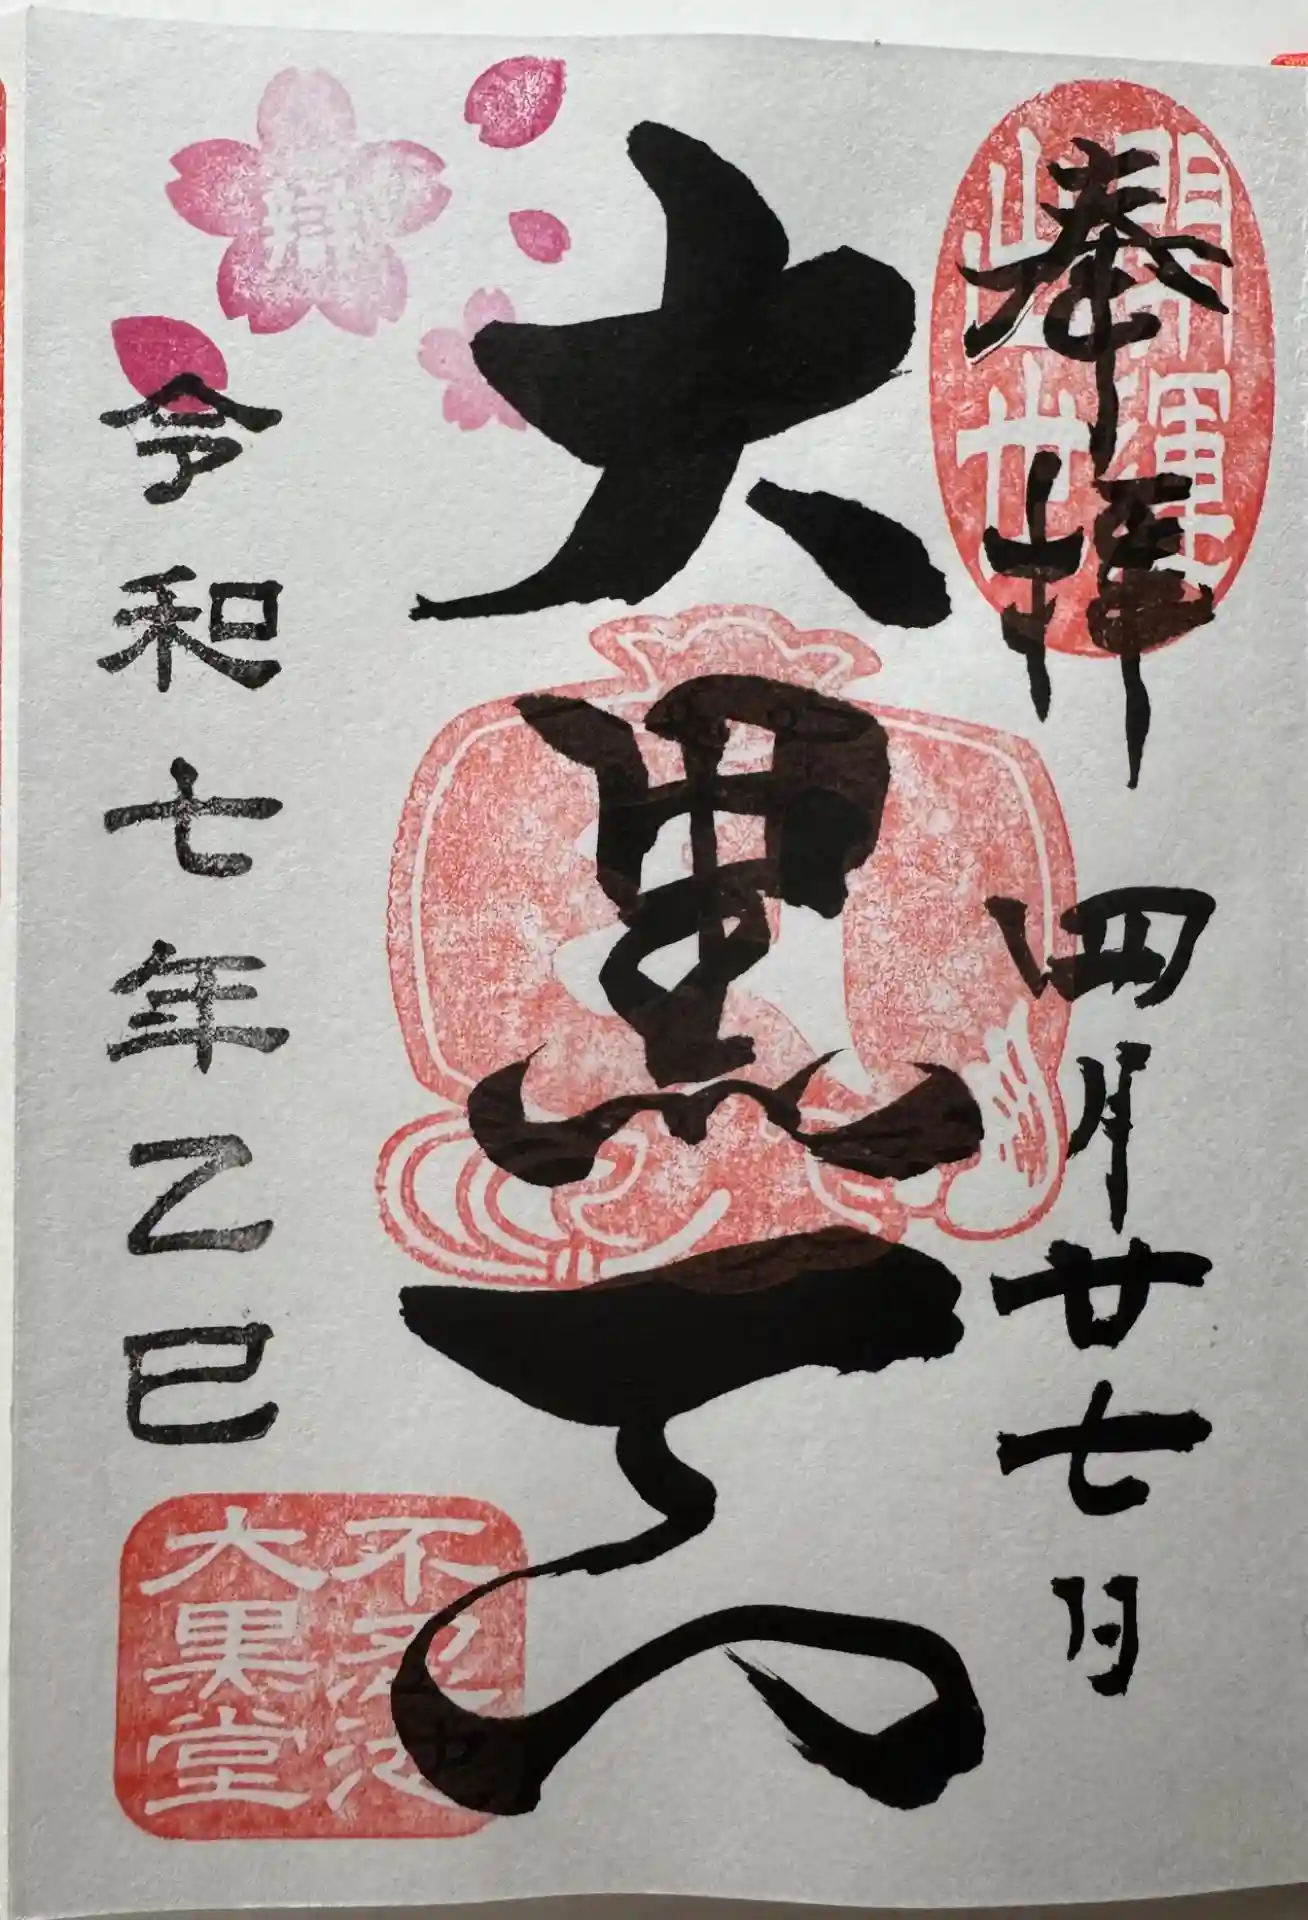 開運
出世
奉拝 四月廿七日
大黒天
令和七年乙巳
不忍池
大黒堂